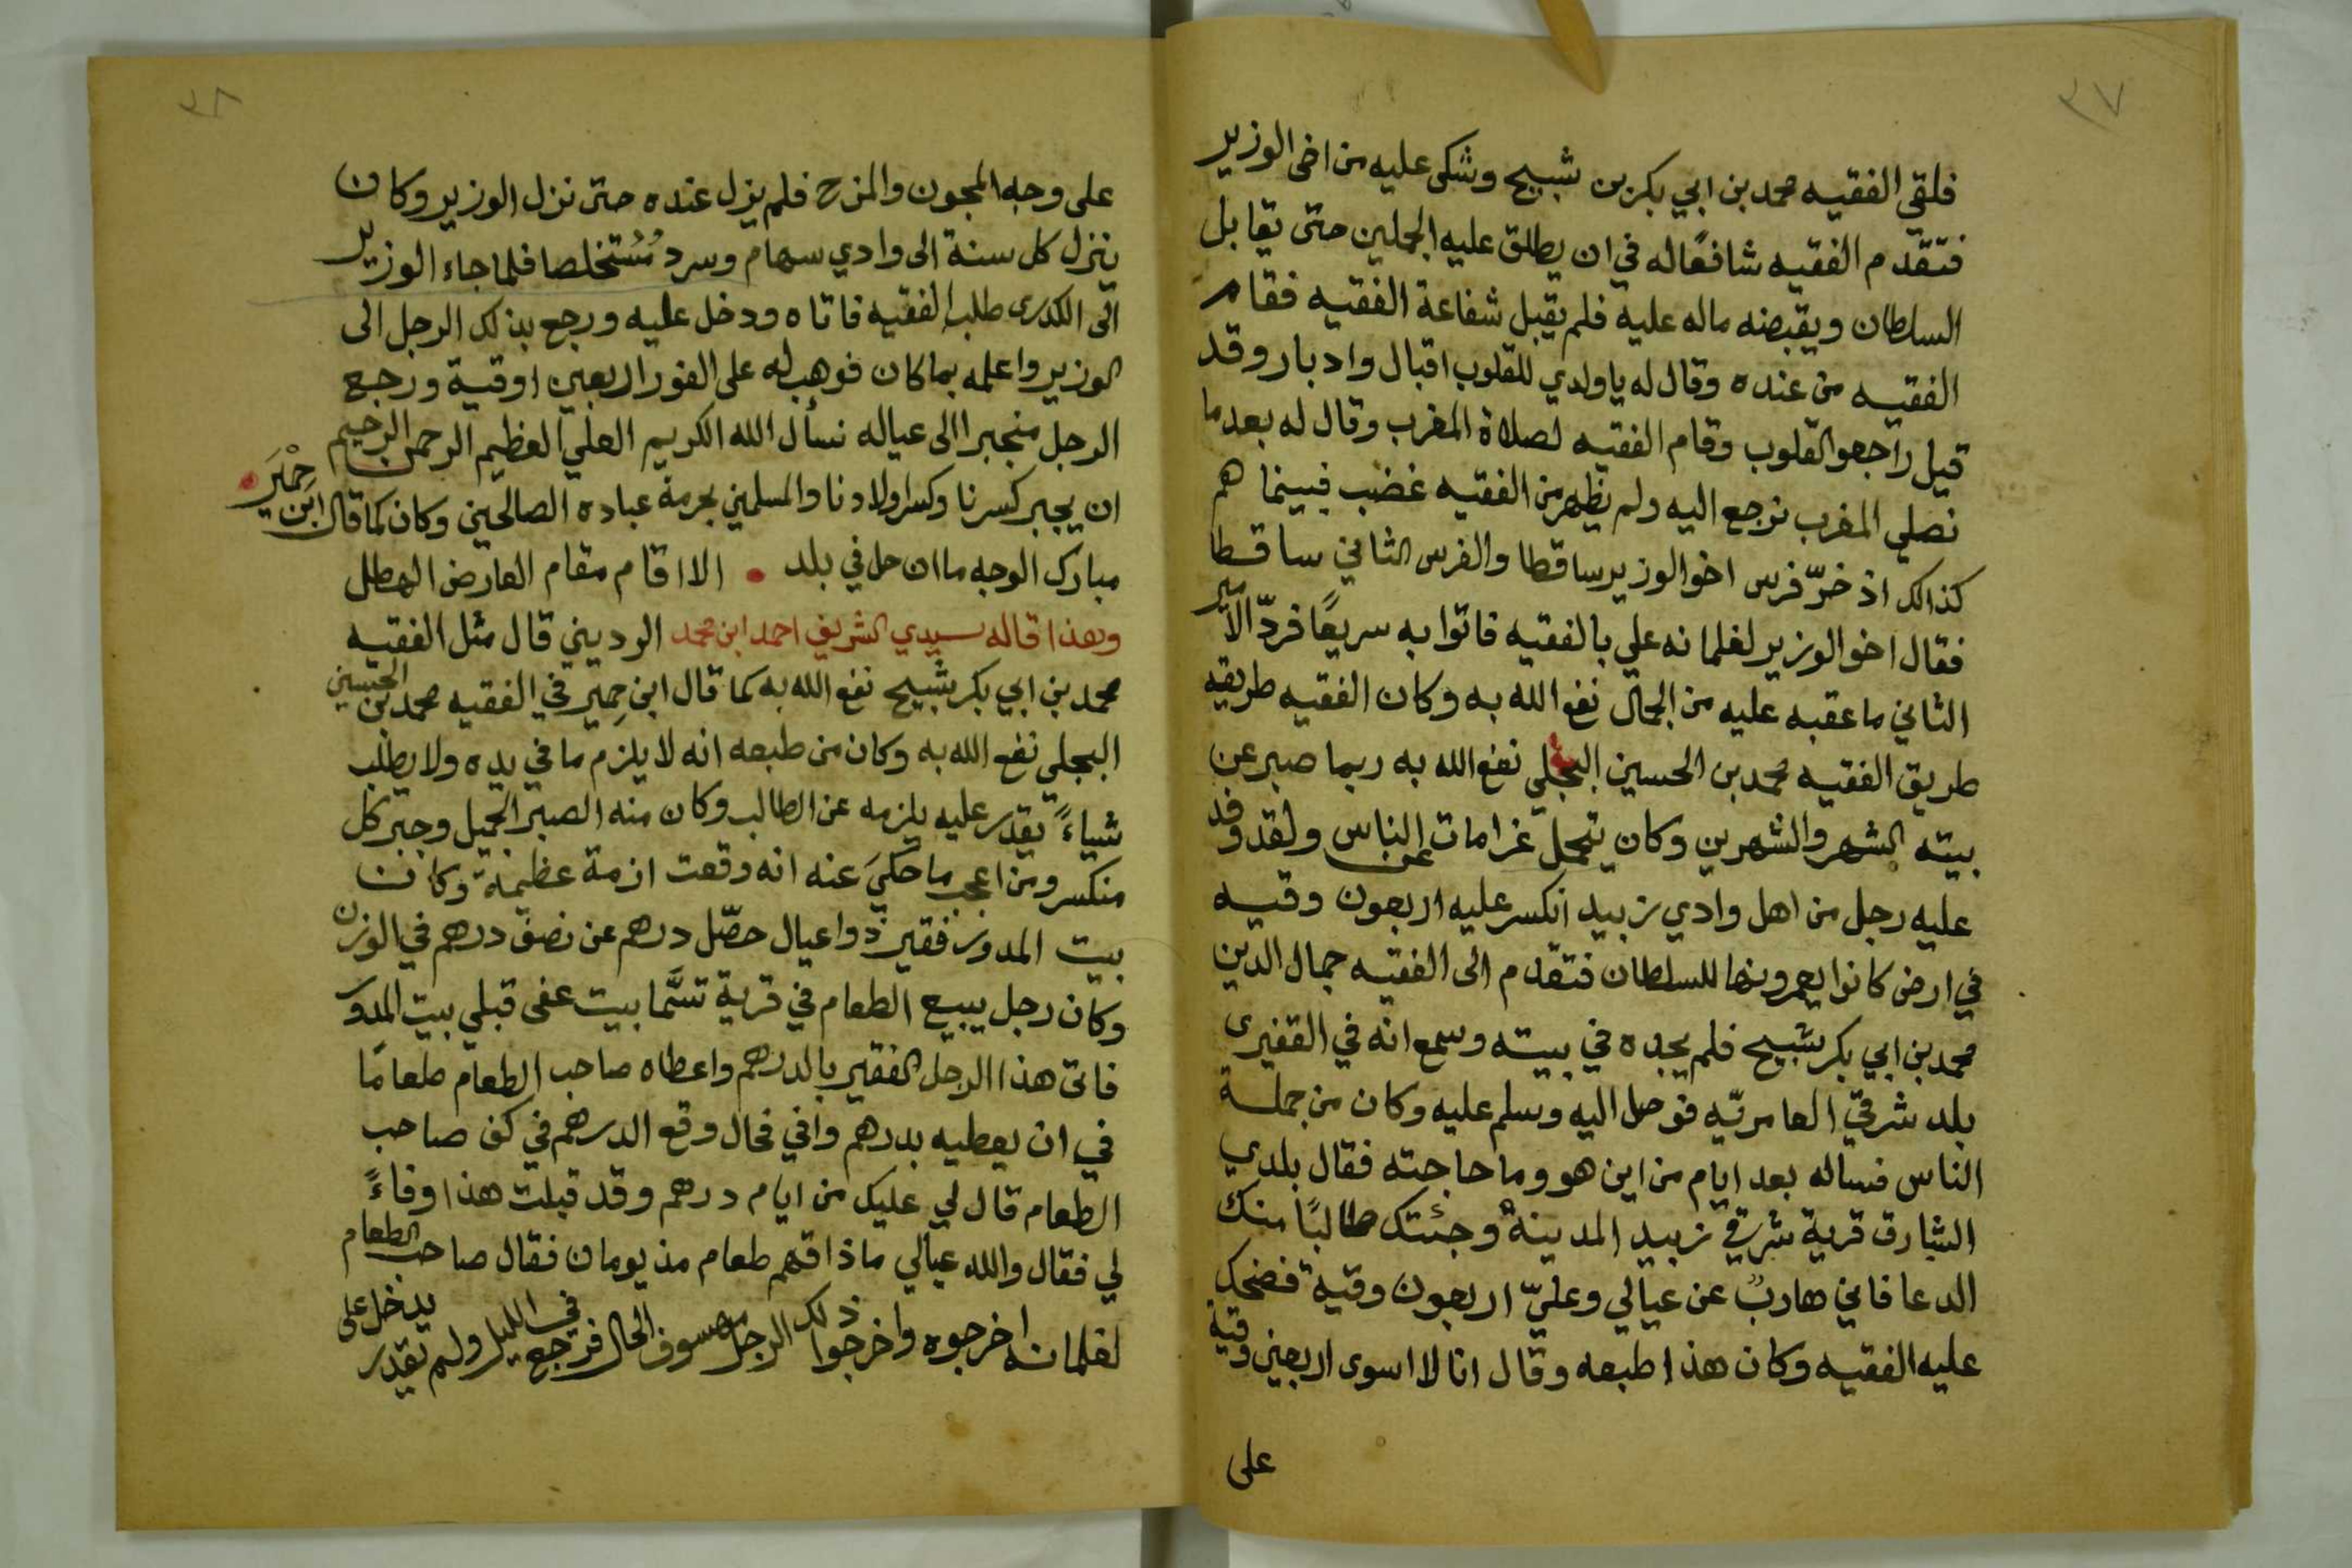 ٣٧
فلقي الفقيه محمد بن ابي بكر بن شبيح وشكى عليه من اخى الوزير
فتقدم الفقيه شافعًا له في ان يطلق عليه الجملين حتى يقابل
السلطان ويقبضه ماله عليه فلم يقبل شفاعة الفقيه فقام
الفقيه من عنده وقال له يا ولدي للقلوب اقبال وادبار وقد
قيل راجعوا القلوب وقام الفقيه لصلاة المغرب وقال له بعد ما
نصلي المغرب نرجع اليه ولم يظهر من الفقيه غضب فبينما هم
كذالك اذ خرّ فرس اخو الوزير ساقطا والفرس الثاني ساقطا
فقال اخو الوزير لغلمانه علي بالفقيه فاتوا به سريعًا فردّ الامير
الثاني ما عقبه عليه من الجمال نفع الله به وكان الفقيه طريقه
طريق الفقيه محمد بن الحسين البجلي نفع الله به ربما صبر عن
بيته الشهر والشهرين وكان يتحمل غرامات عن الناس ولقد وفد
عليه رجل من اهل وادي زبيد انكسر عليه اربعون وقيه
في ارض كانوا يعمرونها للسلطان فتقدم الى الفقيه جمال الدين
محمد بن ابي بكر شبيح فلم يجده في بيته وسمع انه في القفيرى
بلد شرقيّ العامريّه فوصل اليه وسلم عليه وكان من جملة
الناس فساله بعد ايام من اين هو وما حاجته فقال بلدي
الشارق قرية شرقي زبيد المدينة وجئتك طالبًا منك
الدعا فاني هاربٌ عن عيالي وعليّ اربعون وقية فضحك
عليه الفقيه وكان هذا طبعه وقال انا لا اسوى اربعين وقية
على
٣٨
على وجه المجون والمزح فلم يزل عنده حتى نزل الوزير وكان
ينزل كل سنة الى وادي سهام وسرد مُسْتخلصا فلما جاء الوزير
الى الكدرى طلب الفقيه فاتاه ودخل عليه ورجع بذلك الرجل الى
الوزير واعلمه بما كان فوهب له على الفور اربعين اوقية ورجع
الرجل منجبرا الى عياله نسأل الله الكريم العلي العظيم الرحمن الرحيم
ان يجبر كسرنا وكسر اولادنا والمسلمين بحرمة عباده الصالحين وكان كما قال ابن حِمْيَر
مبارك الوجه ما ان حل في بلد • الا اقام مقام العارض الهطل
وهذا قاله سيدي الشريف احمد ابن محمد الرديني قال مثل الفقيه
محمد بن ابي بكر شُبيح نفع الله به كما قال ابن حِمير في الفقيه محمد بن الحسين
البجلي نفع الله به وكان من طبعه انه لا يلزم ما في يده ولا يطلب
شياءً يقدر عليه يلزمه عن الطالب وكان منه الصبر الجميل وجبر كل
منكسر ومن اعجب ما حكيَ عنه انه وقعت ازمة عظيمة وكان
بيت المدور فقير ذوا عيال حصّل درهم عن نصف درهم في الوزن
وكان رجل يبيع الطعام في قرية تسَّما بيت عفى قبلي بيت المدور
فاتى هذا الرجل الفقير بالدرهم واعطاه صاحب الطعام طعامًا
في ان يعطيه بدرهم وافي فحال وقع الدرهم في كف صاحب
الطعام قال لي عليك من ايام درهم وقد قبلت هذا وفاءً
لي فقال والله عيالي ما ذاقهم طعام مذ يومان فقال صاحب الطعام
لغلمانه اخرجوه واخرجوا ذلك الرجل الحال فرجع في الليل ولم يقدر يدخل على